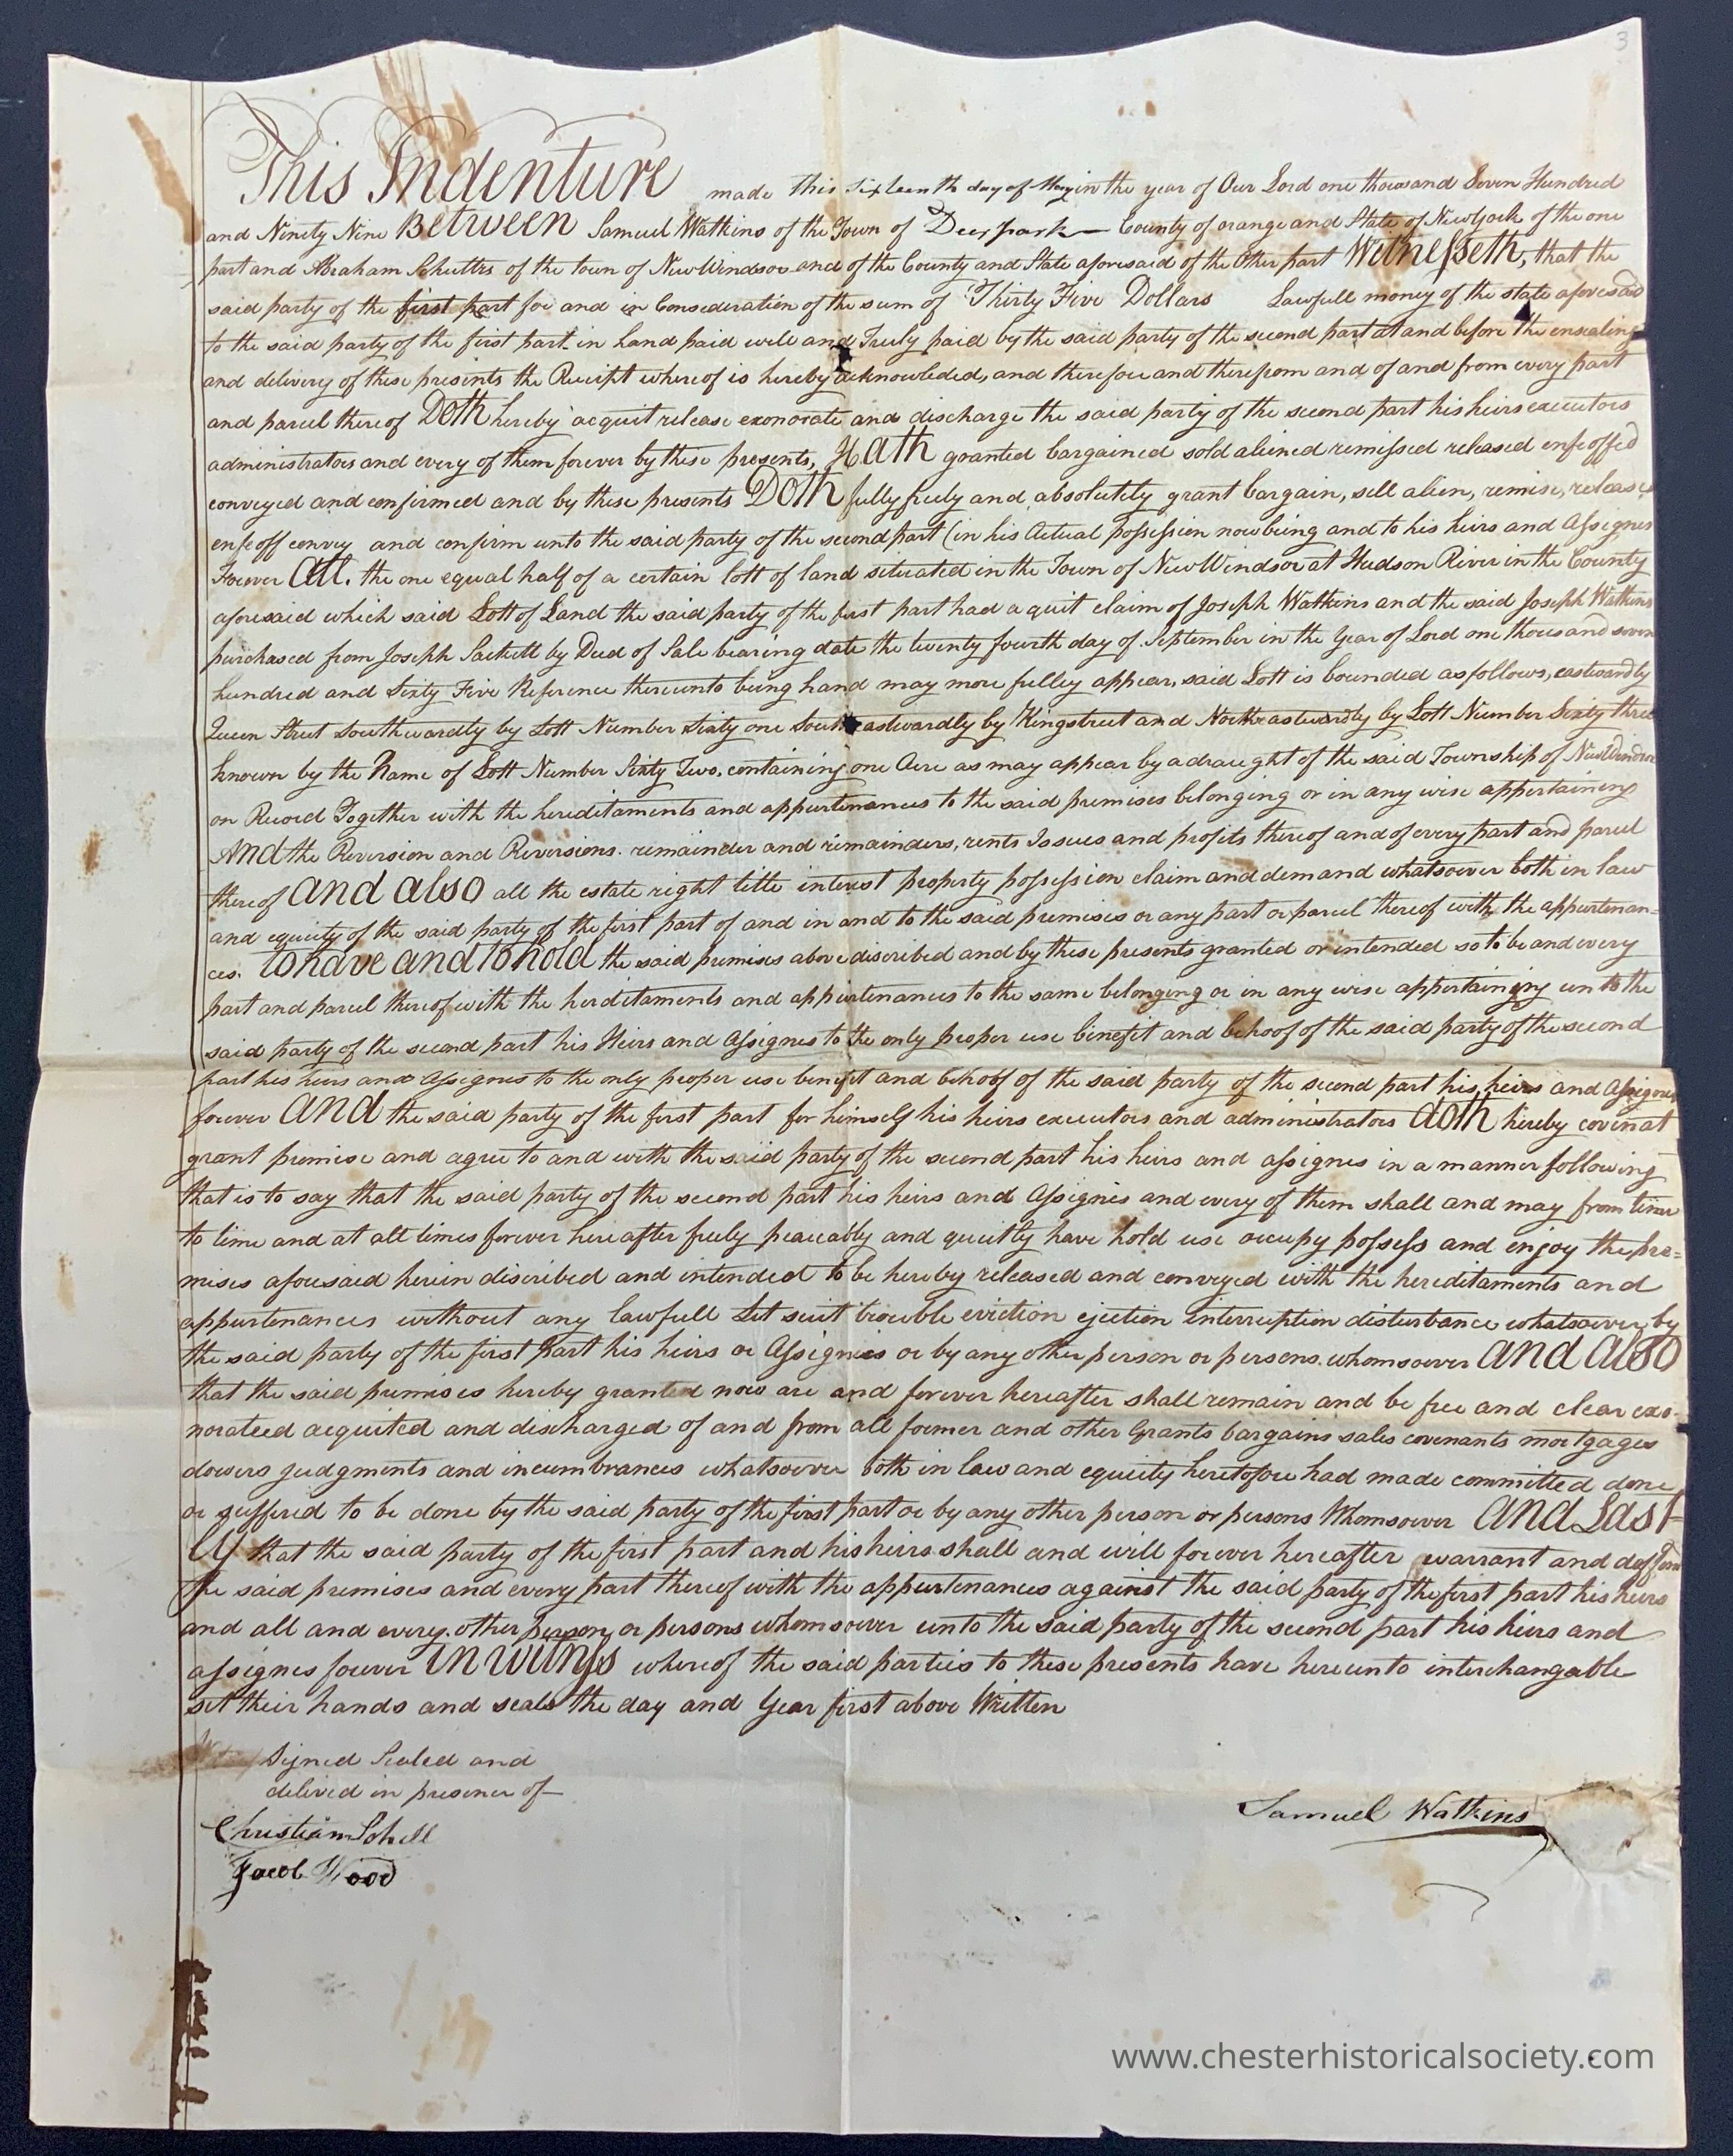 3
This Indenture made this sixteenth day of May in the year of Our Lord one thousand Seven Hundred
and Ninety Nine Between Samuel Watkins of the Town of Deerpark — County of orange and State of New York of the one
part and Abraham Schultrs of the town of New Windsor and of the County and State aforesaid of the Other part Witnesseth, that the
said party of the first part for and in Consideration of the sum of Thirty Five Dollars Lawfull money of the state aforesaid
to the said party of the first part in hand paid well and Truly paid by the said party of the second part at and before the ensealing
and delivery of these presents the Receipt whereof is hereby acknowleded, and therefore and therefrom and of and from every part
and parcel thereof Doth hereby acquit release exonorate and discharge the said party of the second part his heirs executors
administrators and every of them forever by these presents, Hath granted bargained sold aliened remissed released enfeoffed
conveyed and confirmed and by these presents Doth fully freely and absolutely grant bargain, sell alien, remise, release,
enfeoff convey and confirm unto the said party of the second part (in his Actual possession now being and to his heirs and Assignes
Forever All. the one equal half of a certain lott of land situated in the Town of New Windsor at Hudson River in the County
aforesaid which said Lott of Land the said party of the first part had a quit claim of Joseph Watkins and the said Joseph Watkins
purchased from Joseph Sackett by Deed of Sale bearing date the twenty fourth day of September in the Year of Lord one thousand seven
hundred and Sixty Five Reference thereunto being hand may more fulley appear, said Lott is bounded as follows, eastwardly
Queen Street Southwardly by Lott Number Sixty one South eastwardly by Kingstreet and Northeastwardly by Lott Number Sixty three
known by the Name of Lott Number Sixty Two, containing one Acre as may appear by a draught of the said Township of New Windsor
on Record Together with the hereditaments and appurtenances to the said premises belonging or in any wise appertaining
And the Reversion and Reversions. remainder and remainders, rents Issues and profits thereof and of every part and parcel
thereof and also all the estate right title interest property possession claim and demand whatsoever both in law
and equity of the said party of the first part of and in and to the said premises or any part or parcel thereof with the appurtenan=
ces. to have and to hold the said premises above discribed and by these presents granted or intended so to be and every
part and parcel thereof with the herditaments and appurtenances to the same belonging or in any wise appertaining unto the
said party of the second part his Heirs and Assignes to the only proper use benefit and behoof of the said party of the second
part his heirs and Assignes to the only proper use benefit and behoof of the said party of the second part his heirs and Assignes
forever And the said party of the first part for himself his heirs executors and administrators doth hereby covinat
grant promise and agree to and with the said party of the second part his heirs and assignes in a manner following
that is to say that the said party of the second part his heirs and Assignes and every of them shall and may from time
to time and at all times forever hereafter freely peaceably and quietly have hold use occupy possess and enjoy the pre=
mises aforesaid herein discribed and intended to be hereby released and conveyed with the hereditaments and
appurtenances without any lawfull Let suit trouble eviction ejection interruption disturbance whatsoever by
the said party of the first part his heirs or Assignes or by any other person or persons whomsoever and also
that the said premises hereby granted now are and forever hereafter shall remain and be free and clear exo-
norateed acquited and discharged of and from all former and other Grants bargains sales covenants mortgages
dowers judgments and incumbrances whatsoever both in law and equity heretofore had made committed done
or suffered to be done by the said party of the first part or by any other person or persons Whomsoever and Last=
ly that the said party of the first part and his heirs shall and will forever hereafter warrant and
the said premises and every part thereof with the appurtenances against the said party of the first part his heirs
and all and every other person or persons whomsoever unto the said party of the second part his heirs and
assignes forever In witness whereof the said parties to these presents have hereunto interchangable
set their hands and seals the day and Year first above Written
Signed Sealed and
delived in presence of
Christian Schell
Jacob Wood
Samuel Watkins
www.chesterhistoricalsociety.com